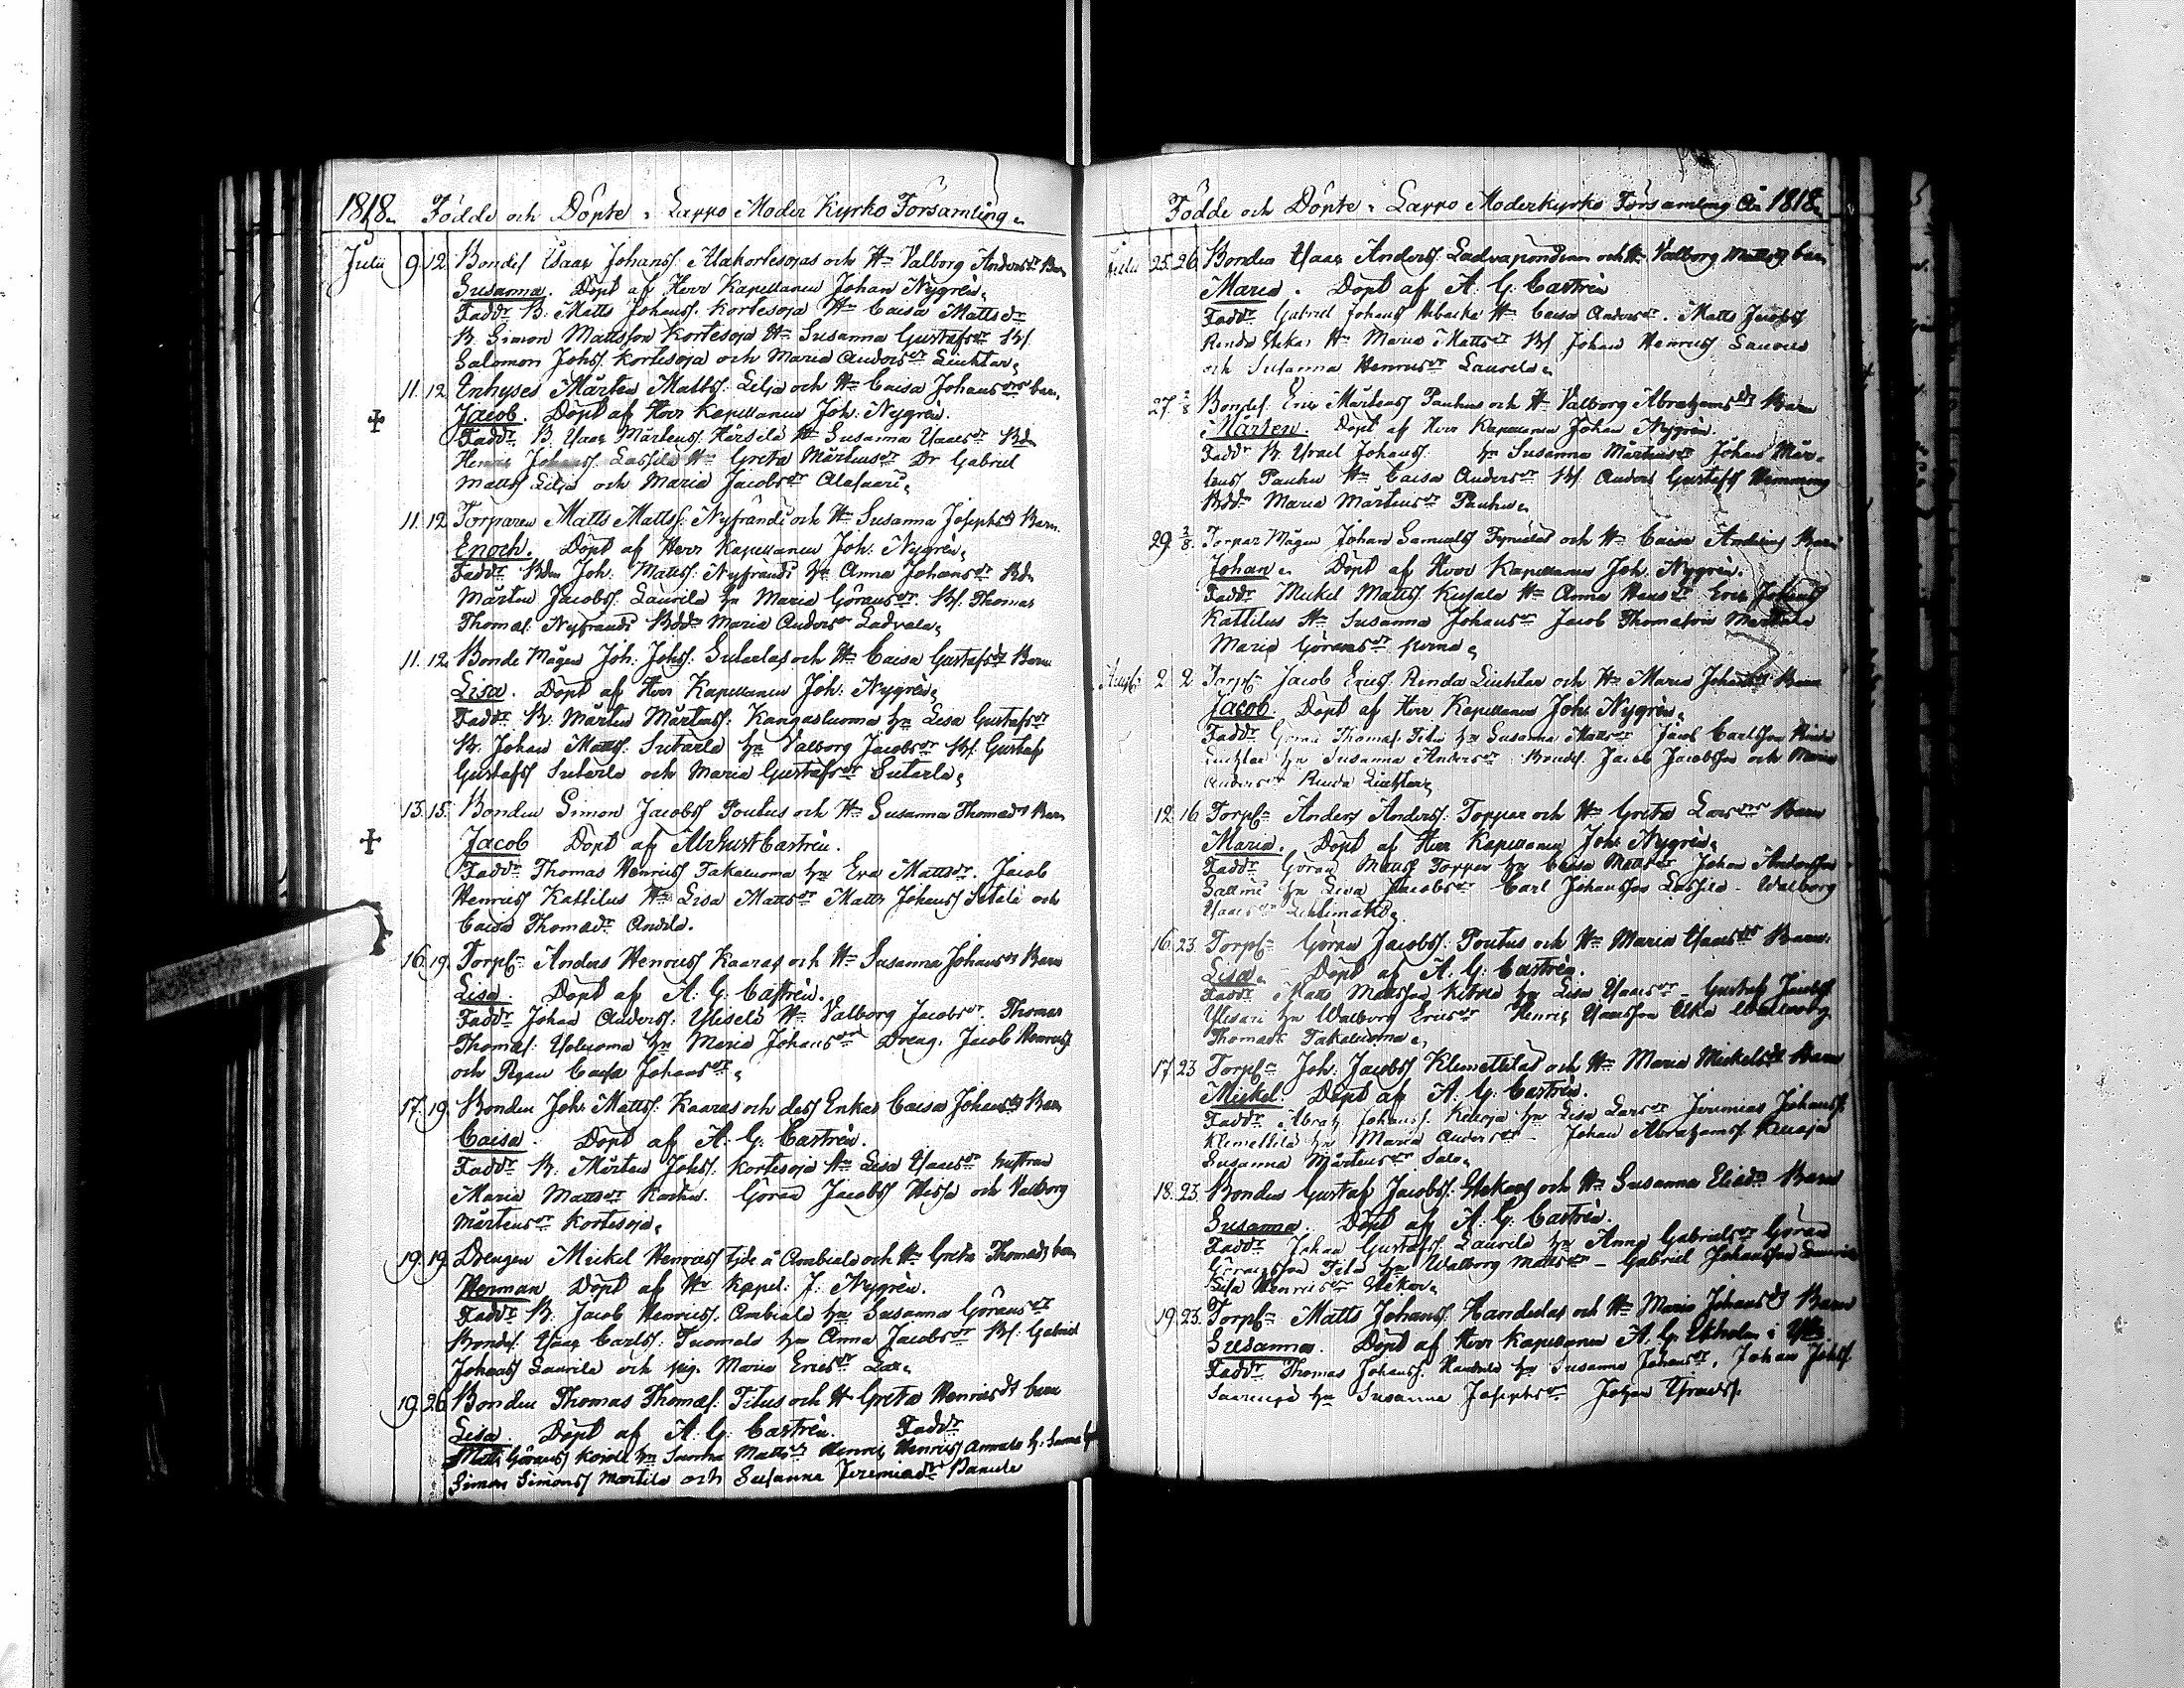 1818. Födde och Döpte i Lappo Moder Kyrko Församling.
Julii 9. 12. Bondes Isaac Johanss. Alakortesojas och H. Valborg Andersdr Barn
Susanna. Döpt af Herr Kapellanen Johan Nygrén.
Faddr B. Matts Johanss. Kortesoja H. Caisa Mattsdr
B. Simon Mattsson Kortesoja H. Susanna Gustafsdr Bs.
Salomon Johss Kortesoja och Maria Andersdr Liuhtar.
11. 12. Inhyses Mårten Mattss. Lilja och H. Caisa Johansdrs barn
Jacob. Döpt af Herr Kapellanen Joh: Nygrén.
Faddr B. Isaac Mårtenss. Hersilä H. Susanna Isaacsdr Bd.
Henric Johanss. Lassila H. Greta Mårtensdr Dr Gabriel
Mattss Lilja och Maria Jacobsdr Alasaari.
11. 12. Torparen Matts Mattss. Nybrandi och H. Susanna Josephsdrs Barn
Enoch. Döpt af Herr Kapellanen Joh: Nygrén.
Faddr Bden Joh: Mattss. Nybrandi hu Anna Johansdr Bd.
Mårten Jacobss. Laurila hu Maria Göransdr. Bs. Thomas
Thomas. Nybrandi Bddr Maria Andersdr Ladvala.
11. 12. Bonde Mågen Joh: Johss. Sutarlas och H. Caisa Gustafsdrs Barn
Lisa. Döpt af Herr Kapellanen Joh: Nygrén.
Faddr B. Mårten Mårtenss. Kangasluoma hu Lisa Gustafsdr
B. Johan Mattss. Sutarla hu Valborg Jacobsdr Bs. Gustaf
Gustafss Sutarla och Maria Gustafsdr Sutarla.
13. 15. Bonden Simon Jacobss Poutus och H. Susanna Thomædrs Barn
Jacob Döpt af Castrén.
Faddr Thomas Henricss Takaluoma hu Eva Mattsdr. Jacob
Henricss Kattilus H. Lisa Mattsdr Matts Johanss och
Caisa Thomædr
16. 19. Torpn Anders Henricss Kaaras och H. Susanna Johansdrs Barn
Lisa. Döpt af A. G. Castrén.
Faddr Johan Anderss. H. Valborg Jacobsdr. Thomas
Thomas. hu Maria Johansdr Dreng. Jacob Henricss
och Pigan Caisa Johansdr.
17. 19. Bonden Joh: Mattss. Kaaras och dess Enkas Caisa Johansdrs Barn
Caisa. Döpt af A. G. Castrén.
Faddr B. Mårten Johss. Kortesoja H. Lisa Isaacsdr hustrun
Maria Mattsdr Göran Jacobss Hissa och Valborg
Mårtensdr Kortesoja.
19. 19. Drengen Mickel Henricss å Ambiala och H. Greta Thomædrs barn
Herman Döpt af Hr Kapel: J. Nygrén.
Faddr B. Jacob Henricss. Ambiala hu Susanna Göransdr
Bondes. Isaac Carlss. Tuomala hu Anna Jacobsdr Bs. Gabriel
Johanss Laurila och pig. Maria Ericsdr
19. 26. Bonden Thomas Thomas. Titus och H. Greta Henricsdrs barn
Lisa. Döpt af A. G. Castrén. Faddr
Matts Göranss hu Susanna Mattsdr Henric Henricss
Simon Simonss Martila och Susanna Jeremiædr
Födde och Döpte i Lappo Moderkyrko Församling År 1818.
Julii 25. 26. Bonden Isaac Anderss. Ladvaponden och H. Valborg Mattsdrs barn
Maria. Döpt af A. G. Castrén
Faddr Gabriel Johanss H. Caisa Andersdr. Matts Jacobss
H. Maria Mattsdr Bs. Johan Henricss Laurila
och Susanna Henricsdr Laurila.
27. 2/8 Bondes. Eric Mårtenss Pauhus och H. Valborg Abrahamsdrs Barn
Mårten. Döpt af Herr Kapellanen Johan Nygrén.
Faddr B. Israel Johanss. hu Susanna Mårtensdr Johan Mår-
tenss Pauhu H. Caisa Andersdr Bs. Anders Gustafss Hemming
Bddr Maria Mårtensdr Pauhu.
29. 2/8. Torpar Mågen Johan Samuelss och H. Caisa Barn
Johan. Döpt af Herr Kapellanen Joh. Nygrén.
Faddr Mickel Mattss H. Anna Hansdr Eric Johanss
Kattilus H. Susanna Johansdr Jacob Thomasson
Maria Göransdr
Augs: 2 2 Torpn Jacob Ericss Liuhtar och H. Maria Johansdrs Barn
Jacob. Döpt af Herr Kapellanen Joh. Nygrén.
Faddr Göran Thomas. Titu hu Susanna Mattsdr Jacob Carlsson
Liuhtar hu Susanna Andersdr Bondes. Jacob Jacobsson och Maria
Andersdr Liuhtar.
12. 16. Torpn Anders Anderss. Toppar och H. Greta Larsdrs Barn
Maria. Döpt af Herr Kapellanen Joh. Nygrén.
Faddr Göran Mattss Toppar hu Caisa Mattsdr Johan Andersson
hu Lisa Jacobsdr Carl Johansson Lassila - Walborg
Isaacsdr
16. 23. Torpn Göran Jacobss. Poutus och H. Maria Isaacsdrs Barn
Lisa. Döpt af A. G. Castrén.
Faddr Matts Mattsson hu Lisa Isaacsdr - Gustaf Jacobss
Ylisari hu Walborg Ericsdr Henric Isaacsson Walborg
Thomædr Takaluoma.
17. 23. Torpn Joh. Jacobss Klemettilas och H. Maria Mickelsdrs Barn
Mickel. Döpt af A. G. Castrén.
Faddr Abrah. Johanss. hu Lisa Larsdr Jeremias Johanss.
Klemettilä hu Maria Andersdr - Johan Abrahamss.
Susanna Mårtensdr Salo.
18. 23. Bonden Gustaf Jacobss. och H. Susanna Eliædrs Barn
Susanna. Döpt af A. G. Castrén.
Faddr Johan Gustafss Laurila hu Anna Gabrielsdr Göran
Göransson Titu hu Walborg Mattsdr - Gabriel Johansson
Lisa Henricsdr
19. 23. Torpn Matts Johanss. Handulas och H. Maria Johansdrs Barn
Susanna. Döpt af Herr Kapellanen A. G. Ekholm i
Faddr Thomas Johanss. Handula hu Susanna Johansdr. Johan Johss.
hu Susanna Josephsdr Johan